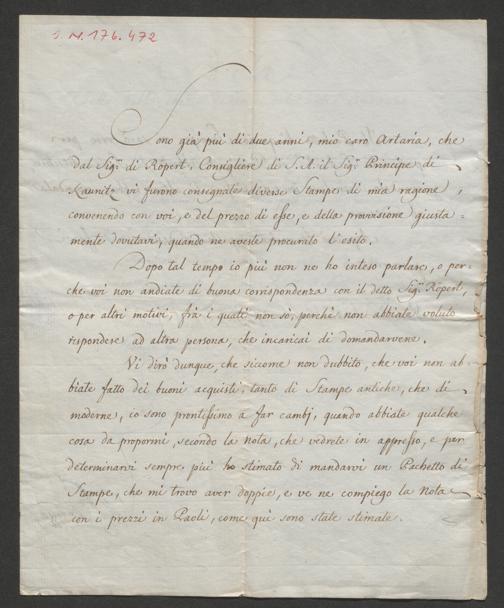 I. N. 176.472
Sono già più di due anni, mio caro Artaria, che
dal Sigr. di Ropert, Consigliere di S. A. il Sigr. Principe di
Kaunitz vi furono consegnate diverse Stampe di mia ragione,
convenendo con voi, e del prezzo di esse, e della provvisione giusta=
mente dovutavi, quando ne aveste procurato l'esito.
Dopo tal tempo io più non ne ho inteso parlare, o per-
che voi non andiate di buona corrispondenza con il detto Sigr. Ropert,
o per altri motivi, frà i quali non sò, perchè non abbiate voluto
rispondere ad altra persona, che incaricai di domandarvene.
Vi dirò dunque, che siccome non dubbito, che voi non ab-
biate fatto dei buoni acquisti, tanto di Stampe antiche, che di
moderne, io sono prontissimo à far cambj, quando abbiate qualche
cosa da propormi, secondo la nota, che vedrete in appresso, e per
determinarvi sempre più ho stimato di mandarvi un Pachetto di
Stampe, che mi trovo aver doppie, e ve ne compiego la Nota
con i prezzi in Paoli, come quì sono state stimate.